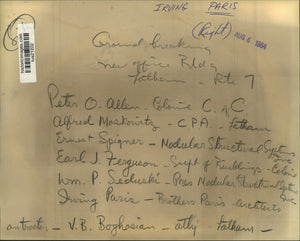 IRVING PARIS
(Right) AUG 6 1964
Ground breaking
new office Bldg
Latham - Rte 7
Peter O. Allen - Colonie C. of C
Alfred Moskowitz - C.P.A. - Latham
Ernest Spigner - Modular Structural Systems Inc
Earl J. Ferguson - Supt of Buildings - Colonie
Wm. P. - Pres Modular Structural Systems Inc
Irving Paris - Brothers Paris - architects
V.B. Boghosian - atty Latham -